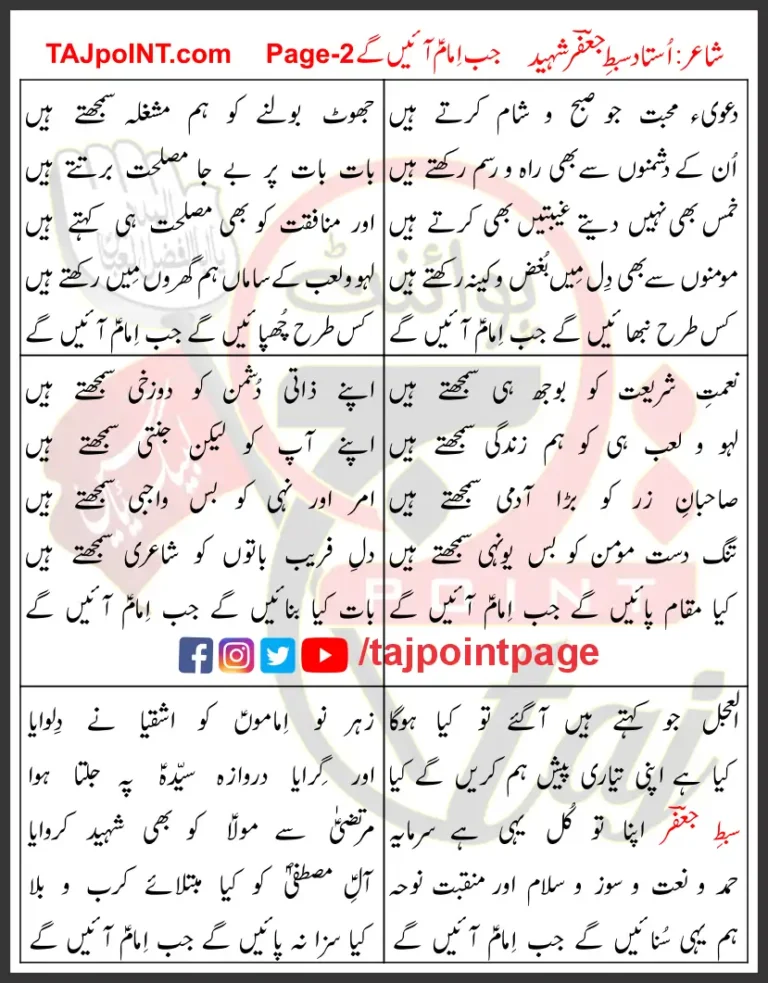 شاعر: اُستاد سبطِ جعفرؔ شہید جب اِمامؑ آئیں گے Page-2 TAJpoINT.com
دعویء محبت جو صبح و شام کرتے ہیں
اُن کے دشمنوں سے بھی راہ و رسم رکھتے ہیں
خمس بھی نہیں دیتے غیبتیں بھی کرتے ہیں
مومنوں سے بھی دِل مِیں بُغض و کینہ رکھتے ہیں
کس طرح نبھائیں گے جب اِمامؑ آئیں گے
جھوٹ بولنے کو ہم مشغلہ سمجھتے ہیں
بات بات پر بے جا مصلحت برتتے ہیں
اور منافقت کو بھی مصلحت ہی کہتے ہیں
لہو و لعب کے ساماں ہم گھروں مِیں رکھتے ہیں
کس طرح چُھپائیں گے جب اِمامؑ آئیں گے
نعمتِ شریعت کو بوجھ ہی سمجھتے ہیں
لہو و لعب ہی کو ہم زندگی سمجھتے ہیں
صاحبانِ زر کو بڑا آدمی سمجھتے ہیں
تنگ دست مومن کو بس یونہی سمجھتے ہیں
کیا مقام پائیں گے جب اِمامؑ آئیں گے
اپنے ذاتی دُشمن کو دوزخی سمجھتے ہیں
اپنے آپ کو لیکن جنتی سمجھتے ہیں
امر اور نہی کو بس واجبی سمجھتے ہیں
دلِ فریب باتوں کو شاعری سمجھتے ہیں
بات کیا بنائیں گے جب اِمامؑ آئیں گے
/tajpointpage
العجل جو کہتے ہیں آگئے تو کیا ہوگا
کیا ہے اپنی تیاری پیش ہم کریں گے کیا
سبطِ جعفرؔ اپنا تو کُل یہی ہے سرمایہ
حمد و نعت و سوز و سلام اور منقبت نوحہ
ہم یہی سُنائیں گے جب اِمامؑ آئیں گے
زہر نو اِماموںؑ کو اشقیا نے دِلوایا
اور گِرایا دروازہ سیّدہؑ پہ جلتا ہوا
مرتضیٰؑ سے مولاؑ کو بھی شہید کروایا
آلِ مصطفیٰؐ کو کیا مبتلائے کرب و بلا
کیا سزا نہ پائیں گے جب اِمامؑ آئیں گے
پوائنٹ
POINT
taj